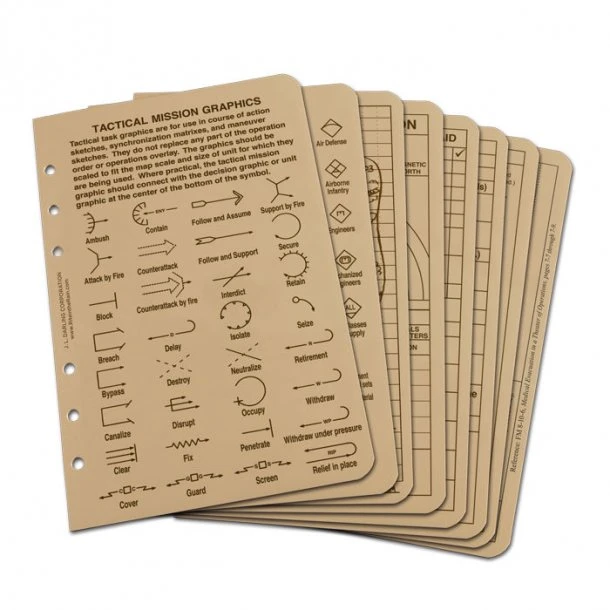 TACTICAL MISSION GRAPHICS
Tactical task graphics are for use in course of action
sketches, synchronization matrixes, and maneuver
sketches. They do not replace any part of the operation
order or operations overlay. The graphics should be
scaled to fit the map scale and size of unit for which they
are being used. Where practical, the tactical mission
graphic should connect with the decision graphic or unit
graphic at the center of the bottom of the symbol.
Ambush
ENY
Contain
Follow and Assume
Support by Fire
Attack by Fire
Counterattack
Follow and Support
Secure
Block
Counterattack by fire
Interdict
Retain
Breach
D
Delay
Isolate
S
Seize
Bypass
Destroy
Neutralize
R
Retirement
Canalize
Disrupt
O
Occupy
W
Withdraw
Clear
Fix
Penetrate
WP
Withdraw under pressure
C C
Cover
G G
Guard
S S
Screen
RIP
Relief in place
J. L. DARLING CORPORATION
www.RiteintheRain.com
Air Defense
Airborne
Infantry
Engineers
hanized
gineers
ALL
lasses
upply
ment
sets
terial
ON
NETIC
RTH
LS
TERS
ION
AID
✓
s)
ed.)
Reference: FM 8-10-6, Medical Evacuation in a Theater of Operations, pages 7-7 through 7-9.